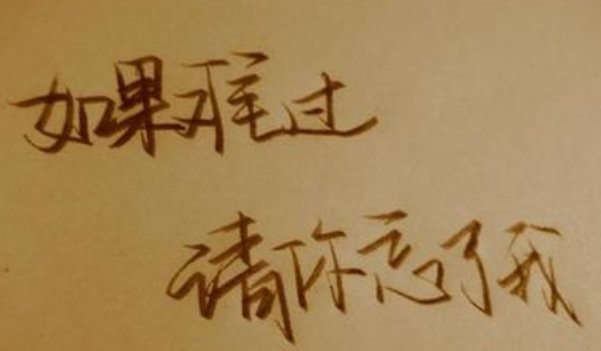 如果难过
请你忘了我